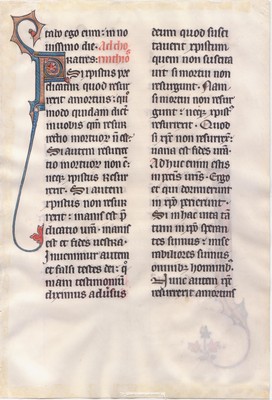 tabo ego eum: in no
uissimo die. Ad cho
Fratres: rinthios
Si xpistus pre
dicatur quod resur
rexit a mortuis: quo
modo quidam dicut
in uobis qm resur
rectio mortuor no est
Si autem resurrec
tio mortuor non e:
neqz xpistus resur
rexit. Si autem
xpistus non resur
rexit: inanis est p
dicatio nra. inanis
est et fides uestra.
Inuenimur autem
et falsi testes dei: qm
testimonium
diximus aduersus
deum quod susci
tauerit xpistum
quem non suscita
uit si mortui non
resurgunt. Nam
si mortui non resur
gunt: neqz xpist
resurrexit. Quod
si xpc non resurrex:
uana est fides ura.
Adhuc enim estis
in pctis uris. Ergo
et qui dormierunt
in xpo perierunt.
Si in hac uita tm
in xpo speran
tes sumus: mise
rabiliores sumus
omnibz hominibz.
Nunc autem xpc
resurrexit a mortuis